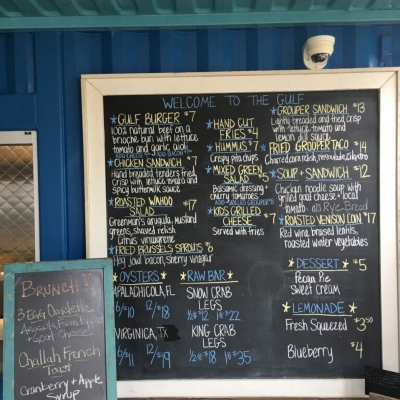 WELCOME TO THE GULF
GULF BURGER $7
100% natural beef on a
brioche bun with lettuce
tomato and garlic aioli
CHICKEN SANDWICH $7
Hand breaded tenders fried
crisp with lettuce tomato and
spicy buttermilk sauce
ROASTED WAHOO
SALAD $17
arugula, mustard
greens, shaved relish
citrus vinaigrette
FRIED BRUSSELS SPROUTS $6
Hog jowl bacon, sherry vinegar
HAND CUT
FRIES $4
HUMMUS $7
Crispy pita chips
MIXED GREEN
SALAD
Balsamic dressing +
cherry tomatoes
KIDS GRILLED
CHEESE $7
Served with fries
GROUPER SANDWICH $13
Lightly breaded and fried crisp
with lettuce, tomato and
lemon dill sauce
FRIED GROUPER TACO $14
Charred corn relish, remoulade, cilantro
SOUP + SANDWICH $12
Chicken noodle soup with
Grilled goat cheese + local
tomato on Rye Bread
ROASTED VENISON LOIN $17
Red wine braised lentils,
roasted winter vegetables
DESSERT $5
Pecan Pie
Sweet Cream
LEMONADE
Fresh Squeezed $3.50
Blueberry $4
OYSTERS
APALACHICOLA, FL
6/$10 12/$18
VIRGINICA, TX
6/$11 12/$19
RAW BAR
SNOW CRAB
LEGS
½# $12 1# $22
KING CRAB
LEGS
½# $18 1# $35
BRUNCH!
3 Egg Omelette
+ Goat Cheese
Challah French
Toast
Cranberry + Apple
Syrup